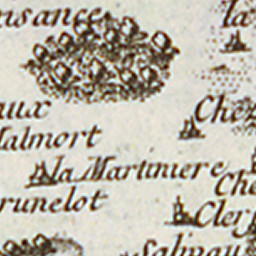 usance la
aux Che
Malmort
la Martiniere
Che
runelot
Cler
Salignau